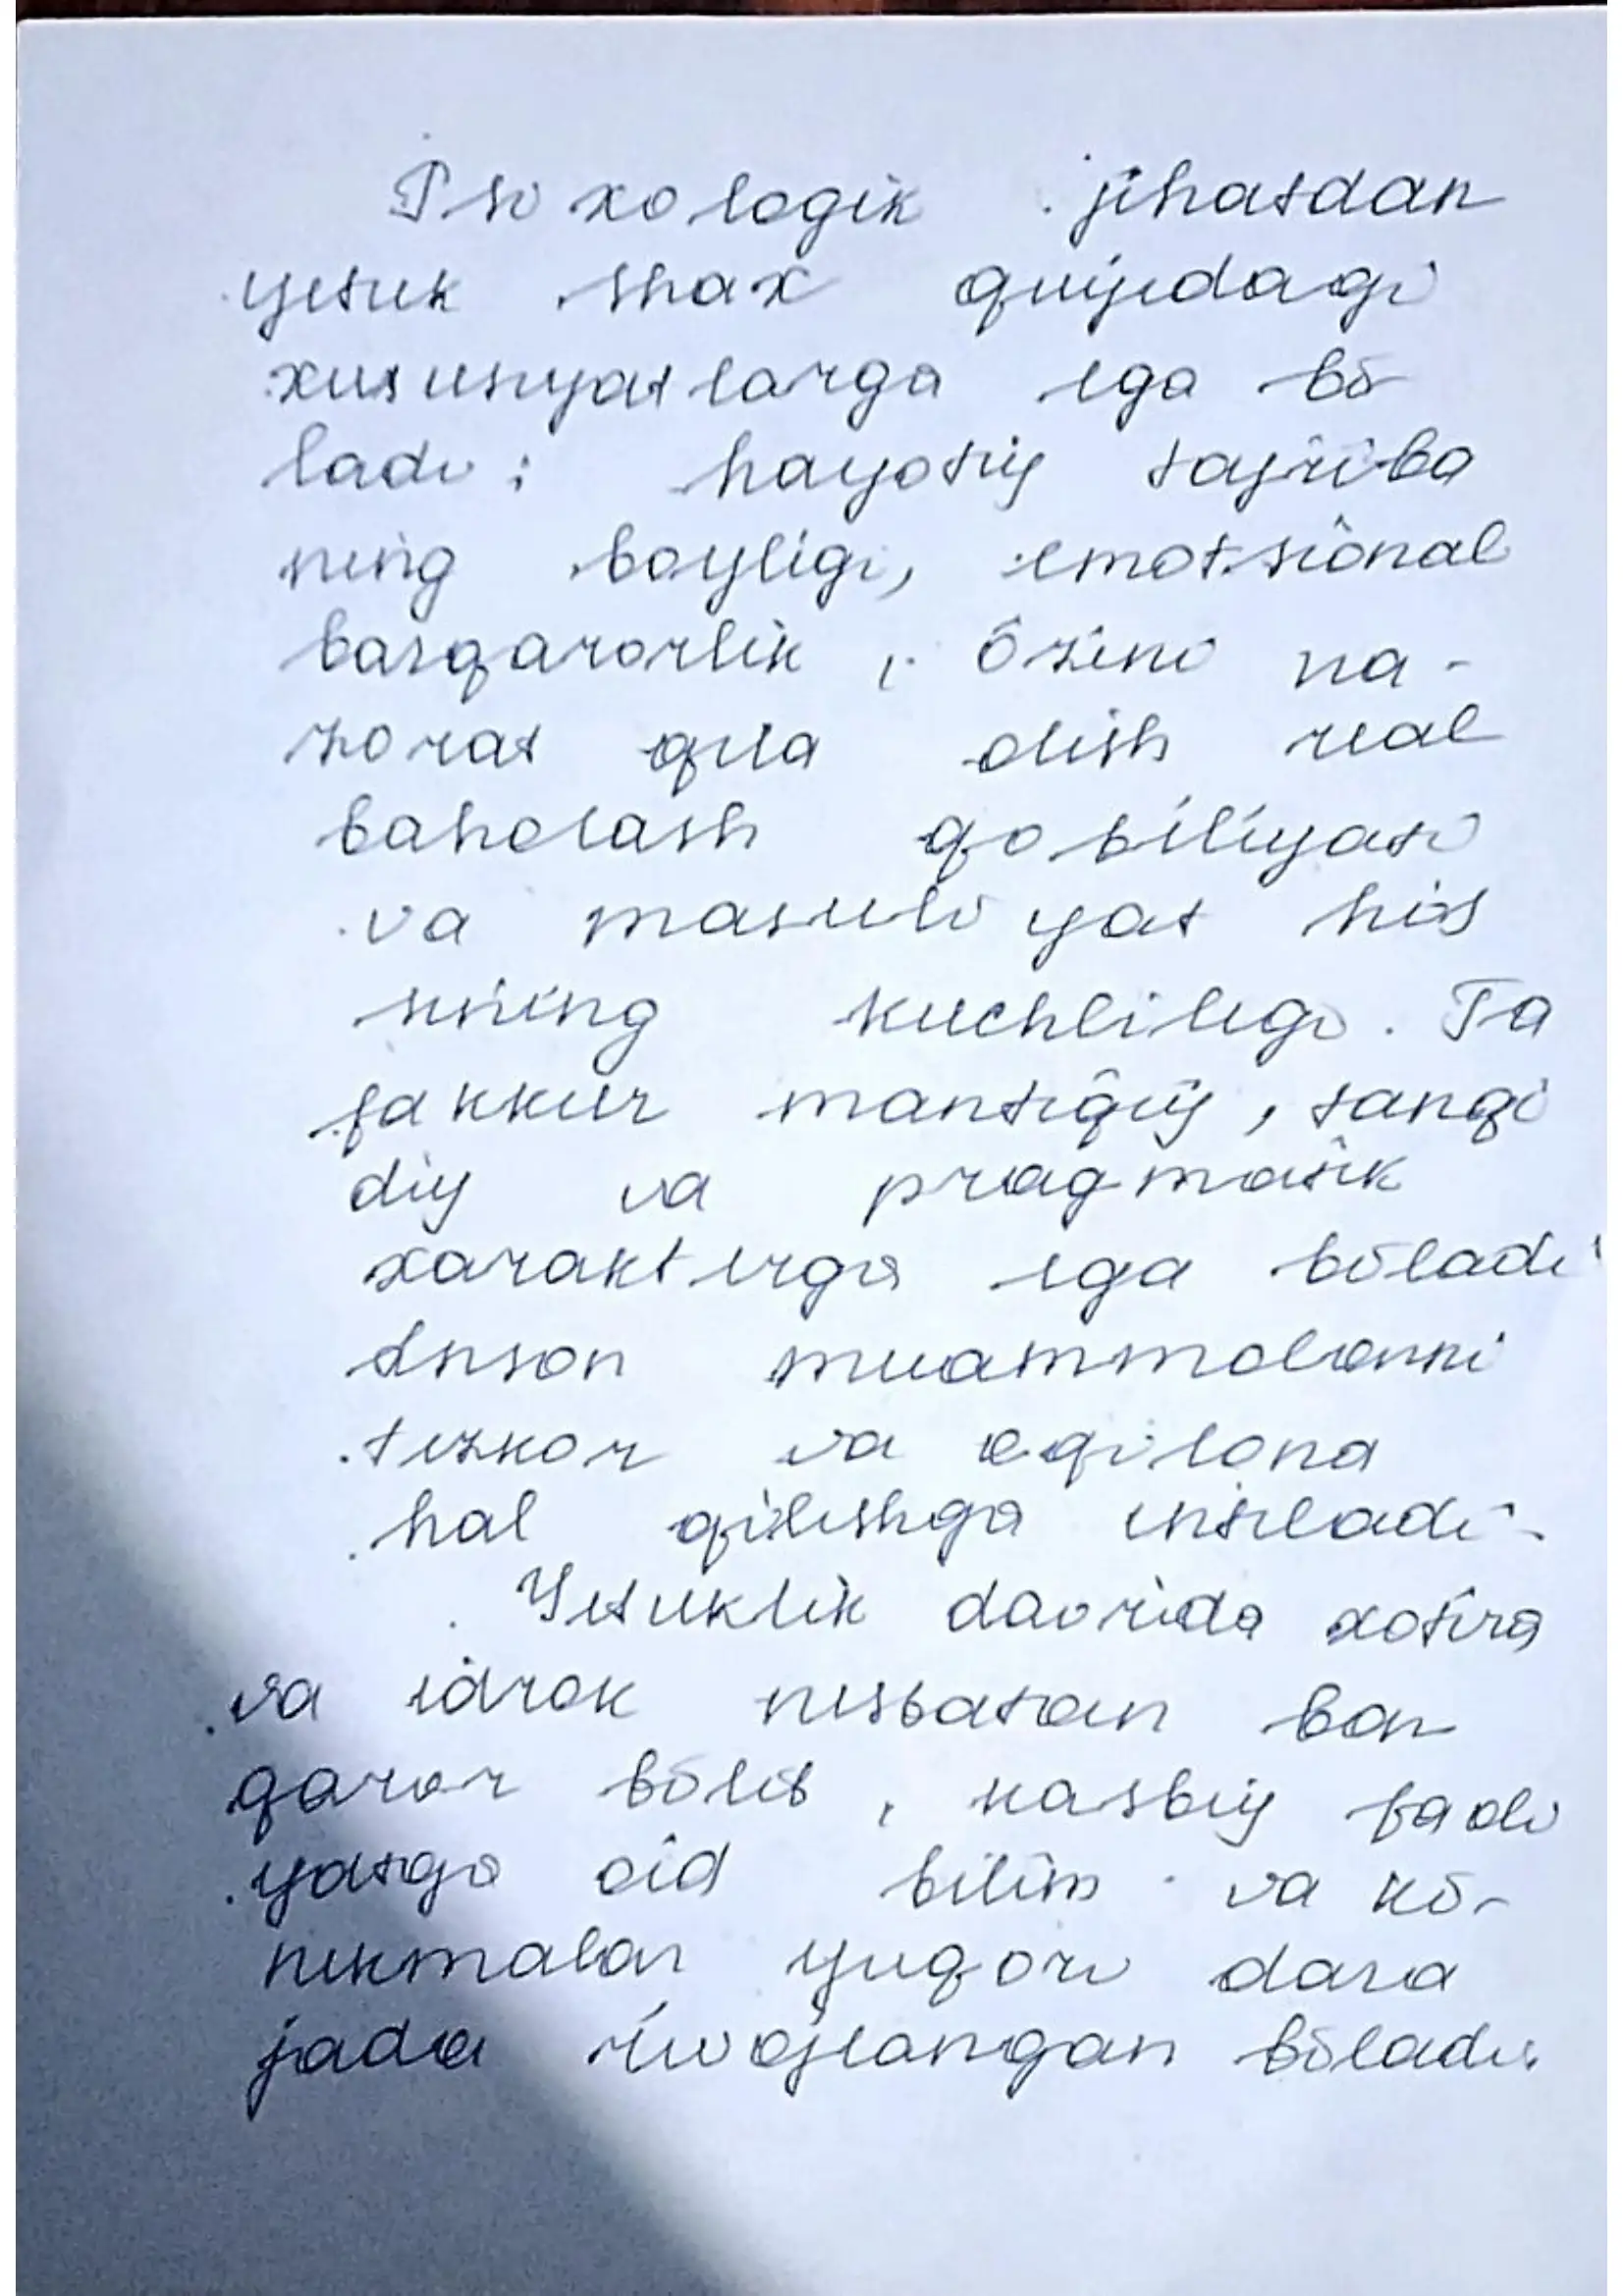 Psixologik jihatdan
yetuk shax quyidagi
xususyatlarga ega bō
ladi: hayotiy tajriba
ning boyligi, emotsional
barqarorlik, Ōzini na-
zorat qila olish real
baholash qobiliyati
va masuliyat his
sining kuchliligi. Ta
fakkur mantiqiy, tanqi
diy va pragmatik
xarakterga ega bōladi
Inson muammolarni
tezkor va oqilona
hal qilishga intiladi.
Yetuklik davrida xotira
va idrok nisbatan bar
qaror bōlib, kasbiy faoli
yatga oid bilim va kō-
nikmalar yuqori dara
jada rivojlangan bōladi.